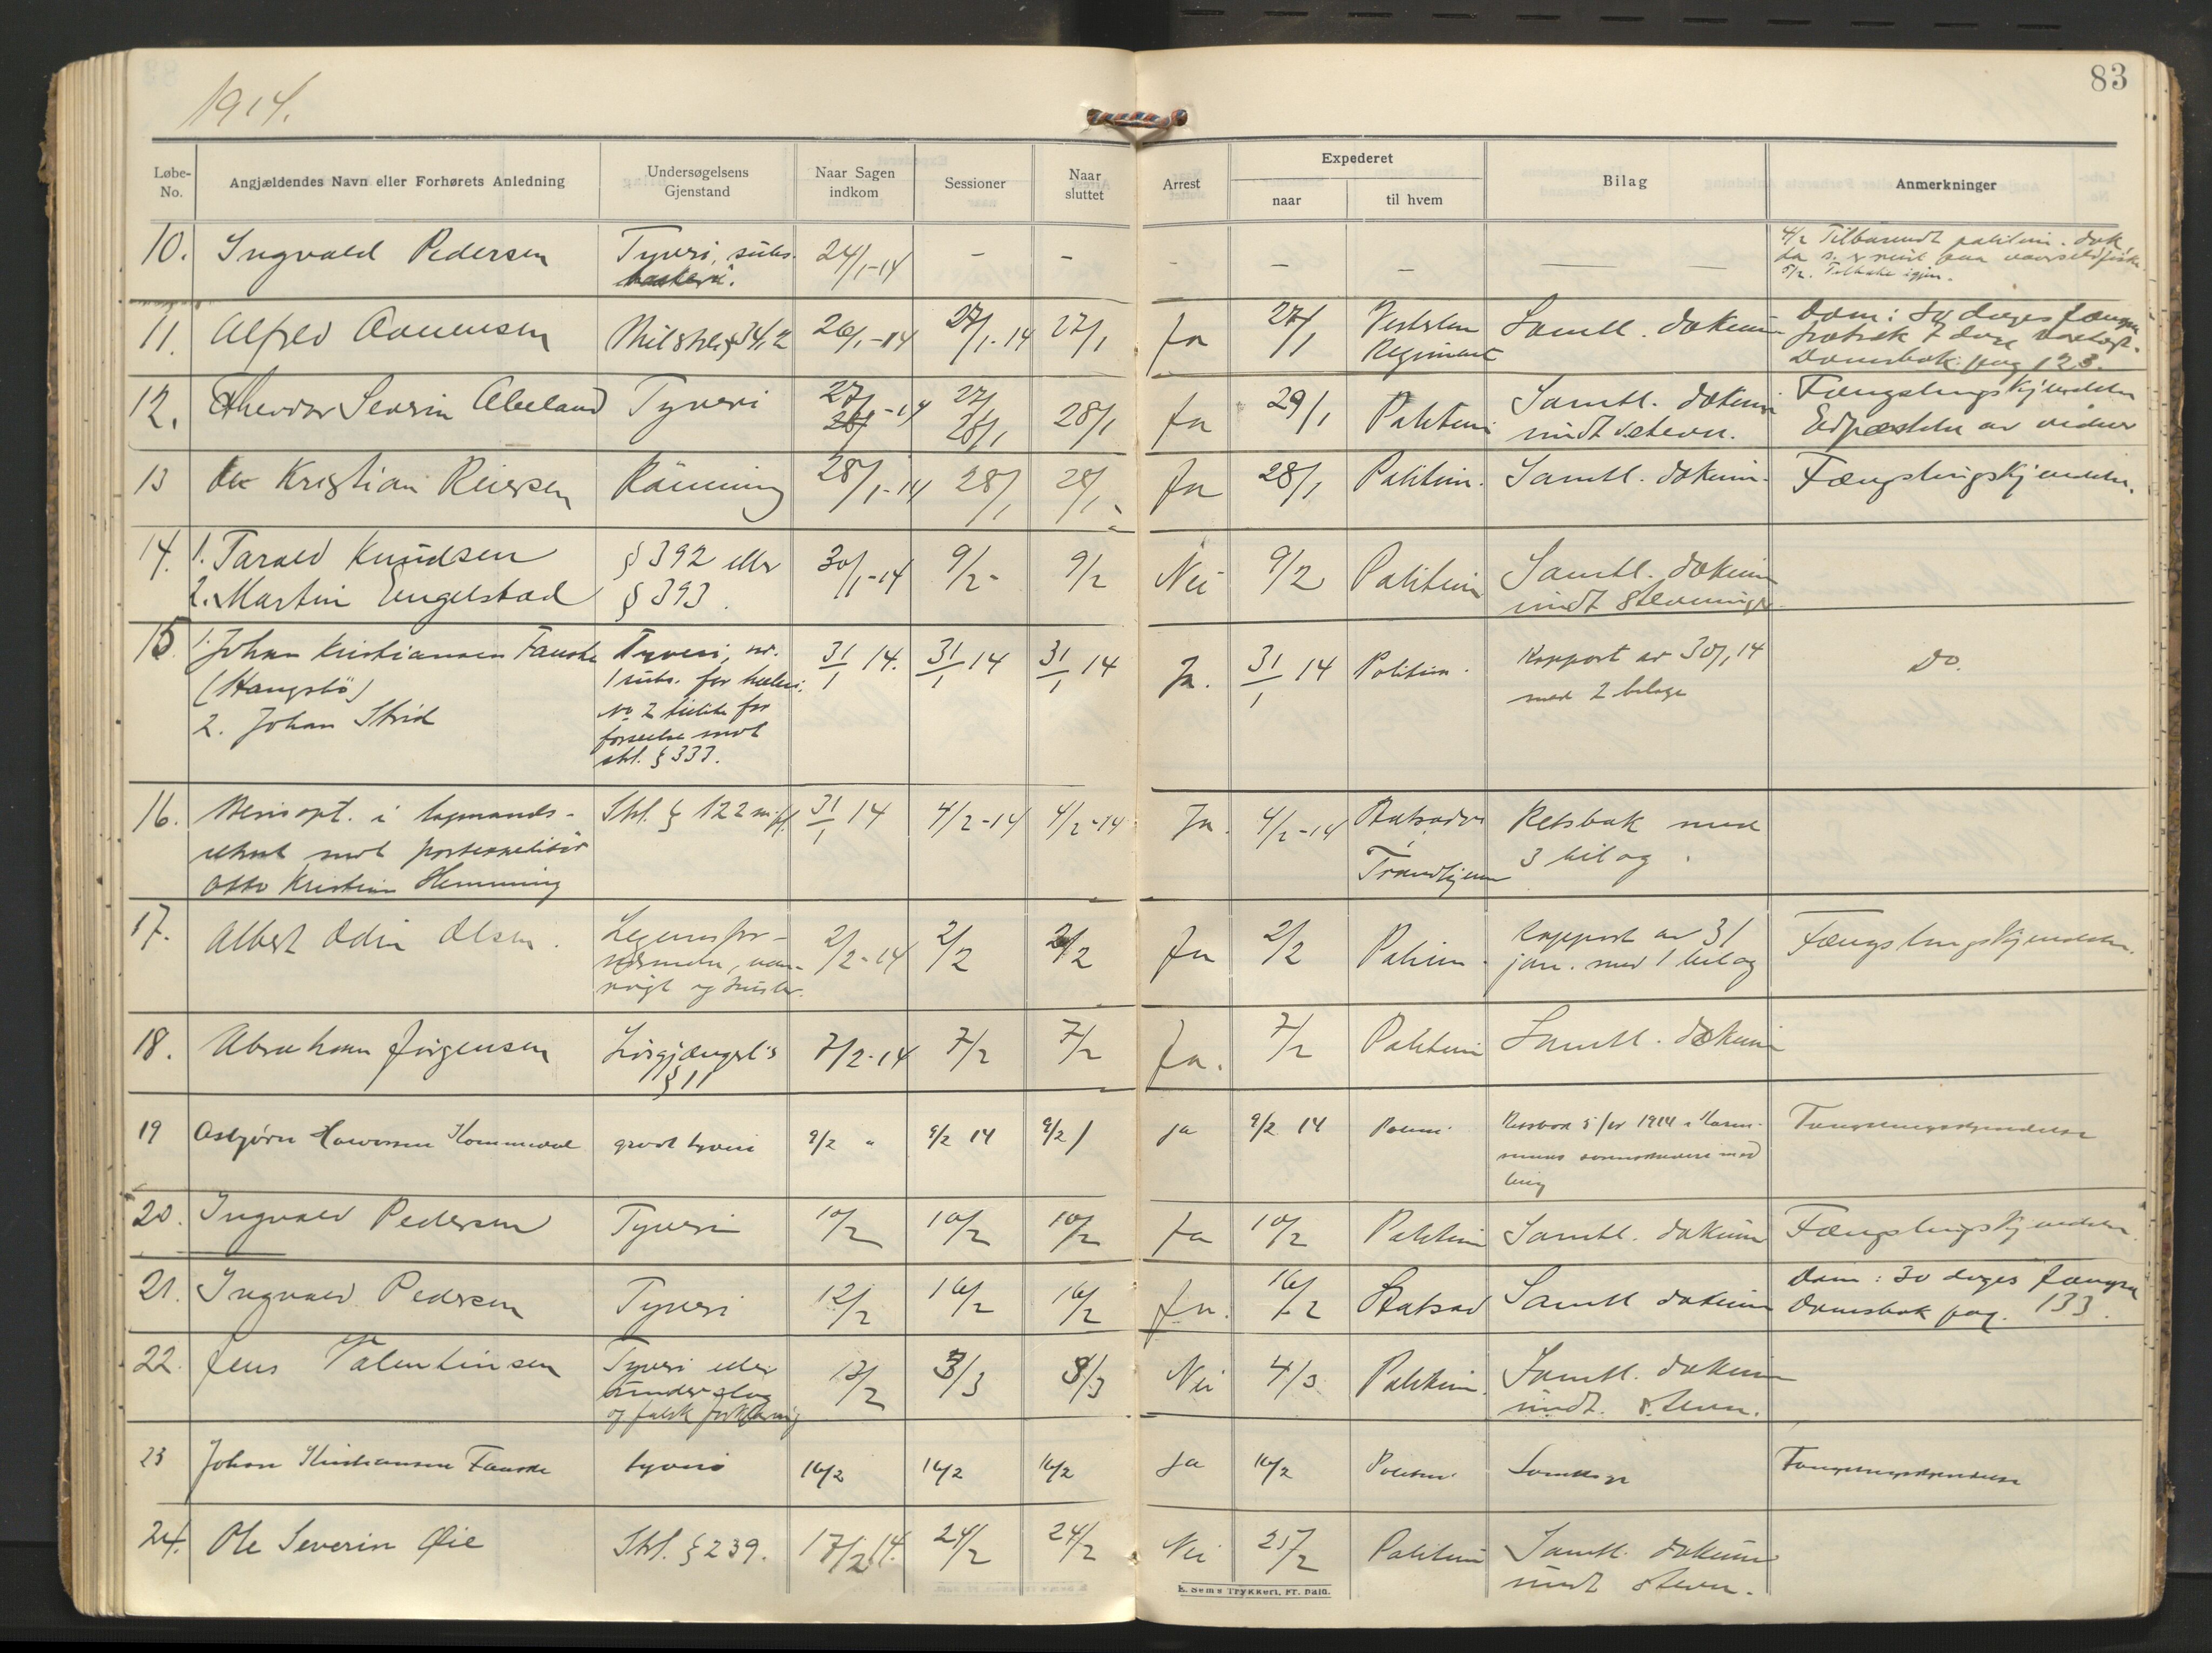 1914.
83
Løbe-No.
Angjældendes Navn eller Forhørets Anledning
Undersøgelsens Gjenstand
Naar Sagen indkom
Sessioner
Naar sluttet
Arrest
Expederet
naar
til hvem
Bilag
Anmerkninger
10. Ingvald Pedersen Tyveri, subs. 24/1-14 - - - - - -
4/2 Tilbakesendt politim. dok.
5/2. Tilbake igjen.
11. Alfred 26/1-14 27/1-14 27/1 Ja 27/1 Vesterlen Regiment Samtl. dokum
Dom: dages fængs
7 dage
Domsbok pag 123.
12. Theodor Severin Abeland Tyveri 27/1-14 27/1 28/1 28/1 Ja 29/1 Politim Samtl. dokum
indt. stevn.
Fængslingskjendelse
av vidner
13 Kristian Reiersen Rømning 28/1-14 28/1 28/1 Ja 28/1 Politim. Samtl. dokum. Fængslingskjendelse.
14. 1. Tarald Knudsen § 392 eller 30/1-14 9/2- 9/2 Nei 9/2 Politim Samtl. dokum
2. Martin Engelstad § 393. indt stevning
15. 1. Johan Kristiansen Fauske Tyveri, nr. 31/1 14. 31/1 14 31/1 14 Ja. 31/1 14 Politim. Rapport av 30/1 14 Do.
1 subs. for heleri. med 2 bilage
2. Johan Strid No 2 tillike for
forseelse mot
strl. § 333.
16. Bevisopt. i lagmands- Strl. § 122 31/1 14 4/2-14 4/2-14 Ja. 4/2-14 Statsadv. Retsbok med
mot Trondhjem 3 bilag.
Otto Kristian Hemming
17. Albert Odin Olsen. Legemsfor- 2/2-14 2/2 2/2 Ja 2/2 Politim. Rapport av 31 Fængslingskjendelse.
jan. med 1 bilag
18. Abraham Jörgensen Løsgjængerl's 7/2-14 7/2 7/2 Ja. 7/2 Politim Samtl. dokum
§ 11
19 Asbjørn grovt tyveri 9/2 " 9/2 14 9/2 ja 9/2 14 Politim. Retsbok 5 fbr 1914 Fængslingskjendelse
20. Ingvald Pedersen Tyveri 10/2 10/2 10/2 Ja 10/2 Politim Samtl. dokum Fængslingskjendelse.
21. Ingvald Pedersen Tyveri 12/2 16/2 16/2 Ja. 16/2 Statsad Samtl dokum Dom: 30 dages fængsel
Domsbok pag. 133.
22. Jens Valentinsen Tyveri eller 13/2 3/3 3/3 Nei 4/3 Politim. Samtl. dokum
underslag indt. stevn.
og falsk forklaring
23 Johan Kristiansen Fauske tyveri 16/2 16/2 16/2 Ja 16/2 Politim. Samtlige Fængslingskjendelse
24. Ole Severin Øie Strl. § 239. 17/2 14. 24/2 24/2 Nei 25/2 Politim Samtl. dokum
indt stevn.
E. Sem's Trykkeri, Fr. hald.